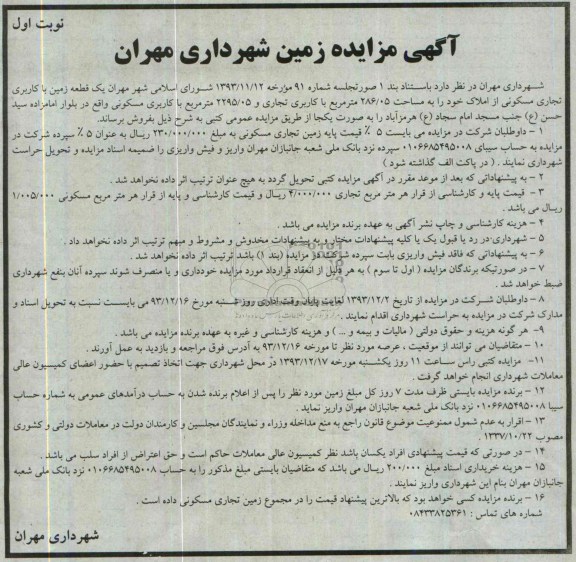 نوبت اول
آگهی مزایده زمین شهرداری مهران
شهرداری مهران در نظر دارد باستناد بند ۱ صورتجلسه شماره ۹۱ مؤرخه ۱۳۹۳/۱۱/۱۲ شورای اسلامی شهر مهران یک قطعه زمین با کاربری
تجاری مسکونی از املاک خود را به مساحت ۲۸۶/۰۵ مترمربع با کاربری تجاری و ۲۲۹۵/۰۵ مترمربع با کاربری مسکونی واقع در بلوار امامزاده سید
حسن (ع) جنب مسجد امام سجاد (ع) هرمزآباد را به صورت یکجا از طریق مزایده عمومی کتبی به شرح ذیل بفروش برساند.
۱ – داوطلبان شرکت در مزایده می بایست ۵ ٪ قیمت پایه زمین تجاری مسکونی به مبلغ ۲۳۰/۰۰۰/۰۰۰ ریال به عنوان ۵ ٪ سپرده شرکت در
مزایده به حساب سیبای ۰۱۰۶۶۸۵۴۹۵۰۰۸ سپرده نزد بانک ملی شعبه جانبازان مهران واریز و فیش واریزی را ضمیمه اسناد مزایده و تحویل حراست
شهرداری نمایند . ( در پاکت الف گذاشته شود )
۲ – به پیشنهاداتی که بعد از موعد مقرر در آگهی مزایده کتبی تحویل گردد به هیچ عنوان ترتیب اثر داده نخواهد شد .
۳ – قیمت پایه و کارشناسی از قرار هر متر مربع تجاری ۴/۰۰۰/۰۰۰ ریال و قیمت کارشناسی و پایه از قرار هر متر مربع مسکونی ۱/۰۰۵/۰۰۰
ریال می باشد .
۴ – هزینه کارشناسی و چاپ نشر آگهی به عهده برنده مزایده می باشد .
۵ – شهرداری در رد یا قبول یک یا کلیه پیشنهادات مختار و به پیشنهادات مخدوش و مشروط و مبهم ترتیب اثر داده نخواهد داد .
۶ – به پیشنهاداتی که فاقد فیش واریزی بابت سپرده شرکت در مزایده (بند ۱) باشد ترتیب اثر داده نخواهد شد .
۷ – در صورتیکه برندگان مزایده ( اول تا سوم ) به هر دلیل از انعقاد قرارداد مورد مزایده خودداری و یا منصرف شوند سپرده آنان بنفع شهرداری
ضبط خواهد شد .
۸ – داوطلبان شرکت در مزایده از تاریخ ۱۳۹۳/۱۲/۲ لغایت پایان وقت اداری روز شنبه مورخ ۹۳/۱۲/۱۶ می بایست نسبت به تحویل اسناد و
مدارک شرکت در مزایده به حراست شهرداری اقدام نمایند .
۹– هر گونه هزینه و حقوق دولتی ( مالیات و بیمه و ... ) و هزینه کارشناسی و غیره به عهده برنده مزایده می باشد .
۱۰ – متقاضیان می توانند از موقعیت ، عرصه مورد نظر تا مورخه ۹۳/۱۲/۱۶ به آدرس فوق مراجعه و بازدید به عمل آورند .
۱۱– مزایده کتبی راس ساعت ۱۱ روز یکشنبه مورخه ۱۳۹۳/۱۲/۱۷ در محل شهرداری جهت اتخاذ تصمیم با حضور اعضای کمیسیون عالی
معاملات شهرداری انجام خواهد گرفت .
۱۲ – برنده مزایده بایستی ظرف مدت ۷ روز کل مبلغ زمین مورد نظر را پس از اعلام برنده شدن به حساب درآمدهای عمومی به شماره حساب
سیبا ۰۱۰۶۶۸۵۴۹۵۰۰۸ نزد بانک ملی شعبه جانبازان مهران واریز نماید .
۱۳ – اقرار به عدم شمول ممنوعیت موضوع قانون راجع به منع مداخله وزراء و نمایندگان مجلسین و کارمندان دولت در معاملات دولتی و کشوری
مصوب ۱۳۳۷/۱۰/۲۲ .
۱۴ – در صورتی که قیمت پیشنهادی افراد یکسان باشد نظر کمیسیون عالی معاملات حاکم است و حق اعتراض از افراد سلب می باشد .
۱۵ – هزینه خریداری اسناد مبلغ ۲۰۰/۰۰۰ ریال می باشد که متقاضیان بایستی مبلغ مذکور را به حساب ۰۱۰۶۶۸۵۴۹۵۰۰۸ نزد بانک ملی شعبه
جانبازان مهران بنام این شهرداری واریز نمایند .
۱۶ – برنده مزایده کسی خواهد بود که بالاترین پیشنهاد قیمت را در مجموع زمین تجاری مسکونی داده است .
شماره های تماس : ۰۸۴۳۳۸۲۵۳۶۱
شهرداری مهران